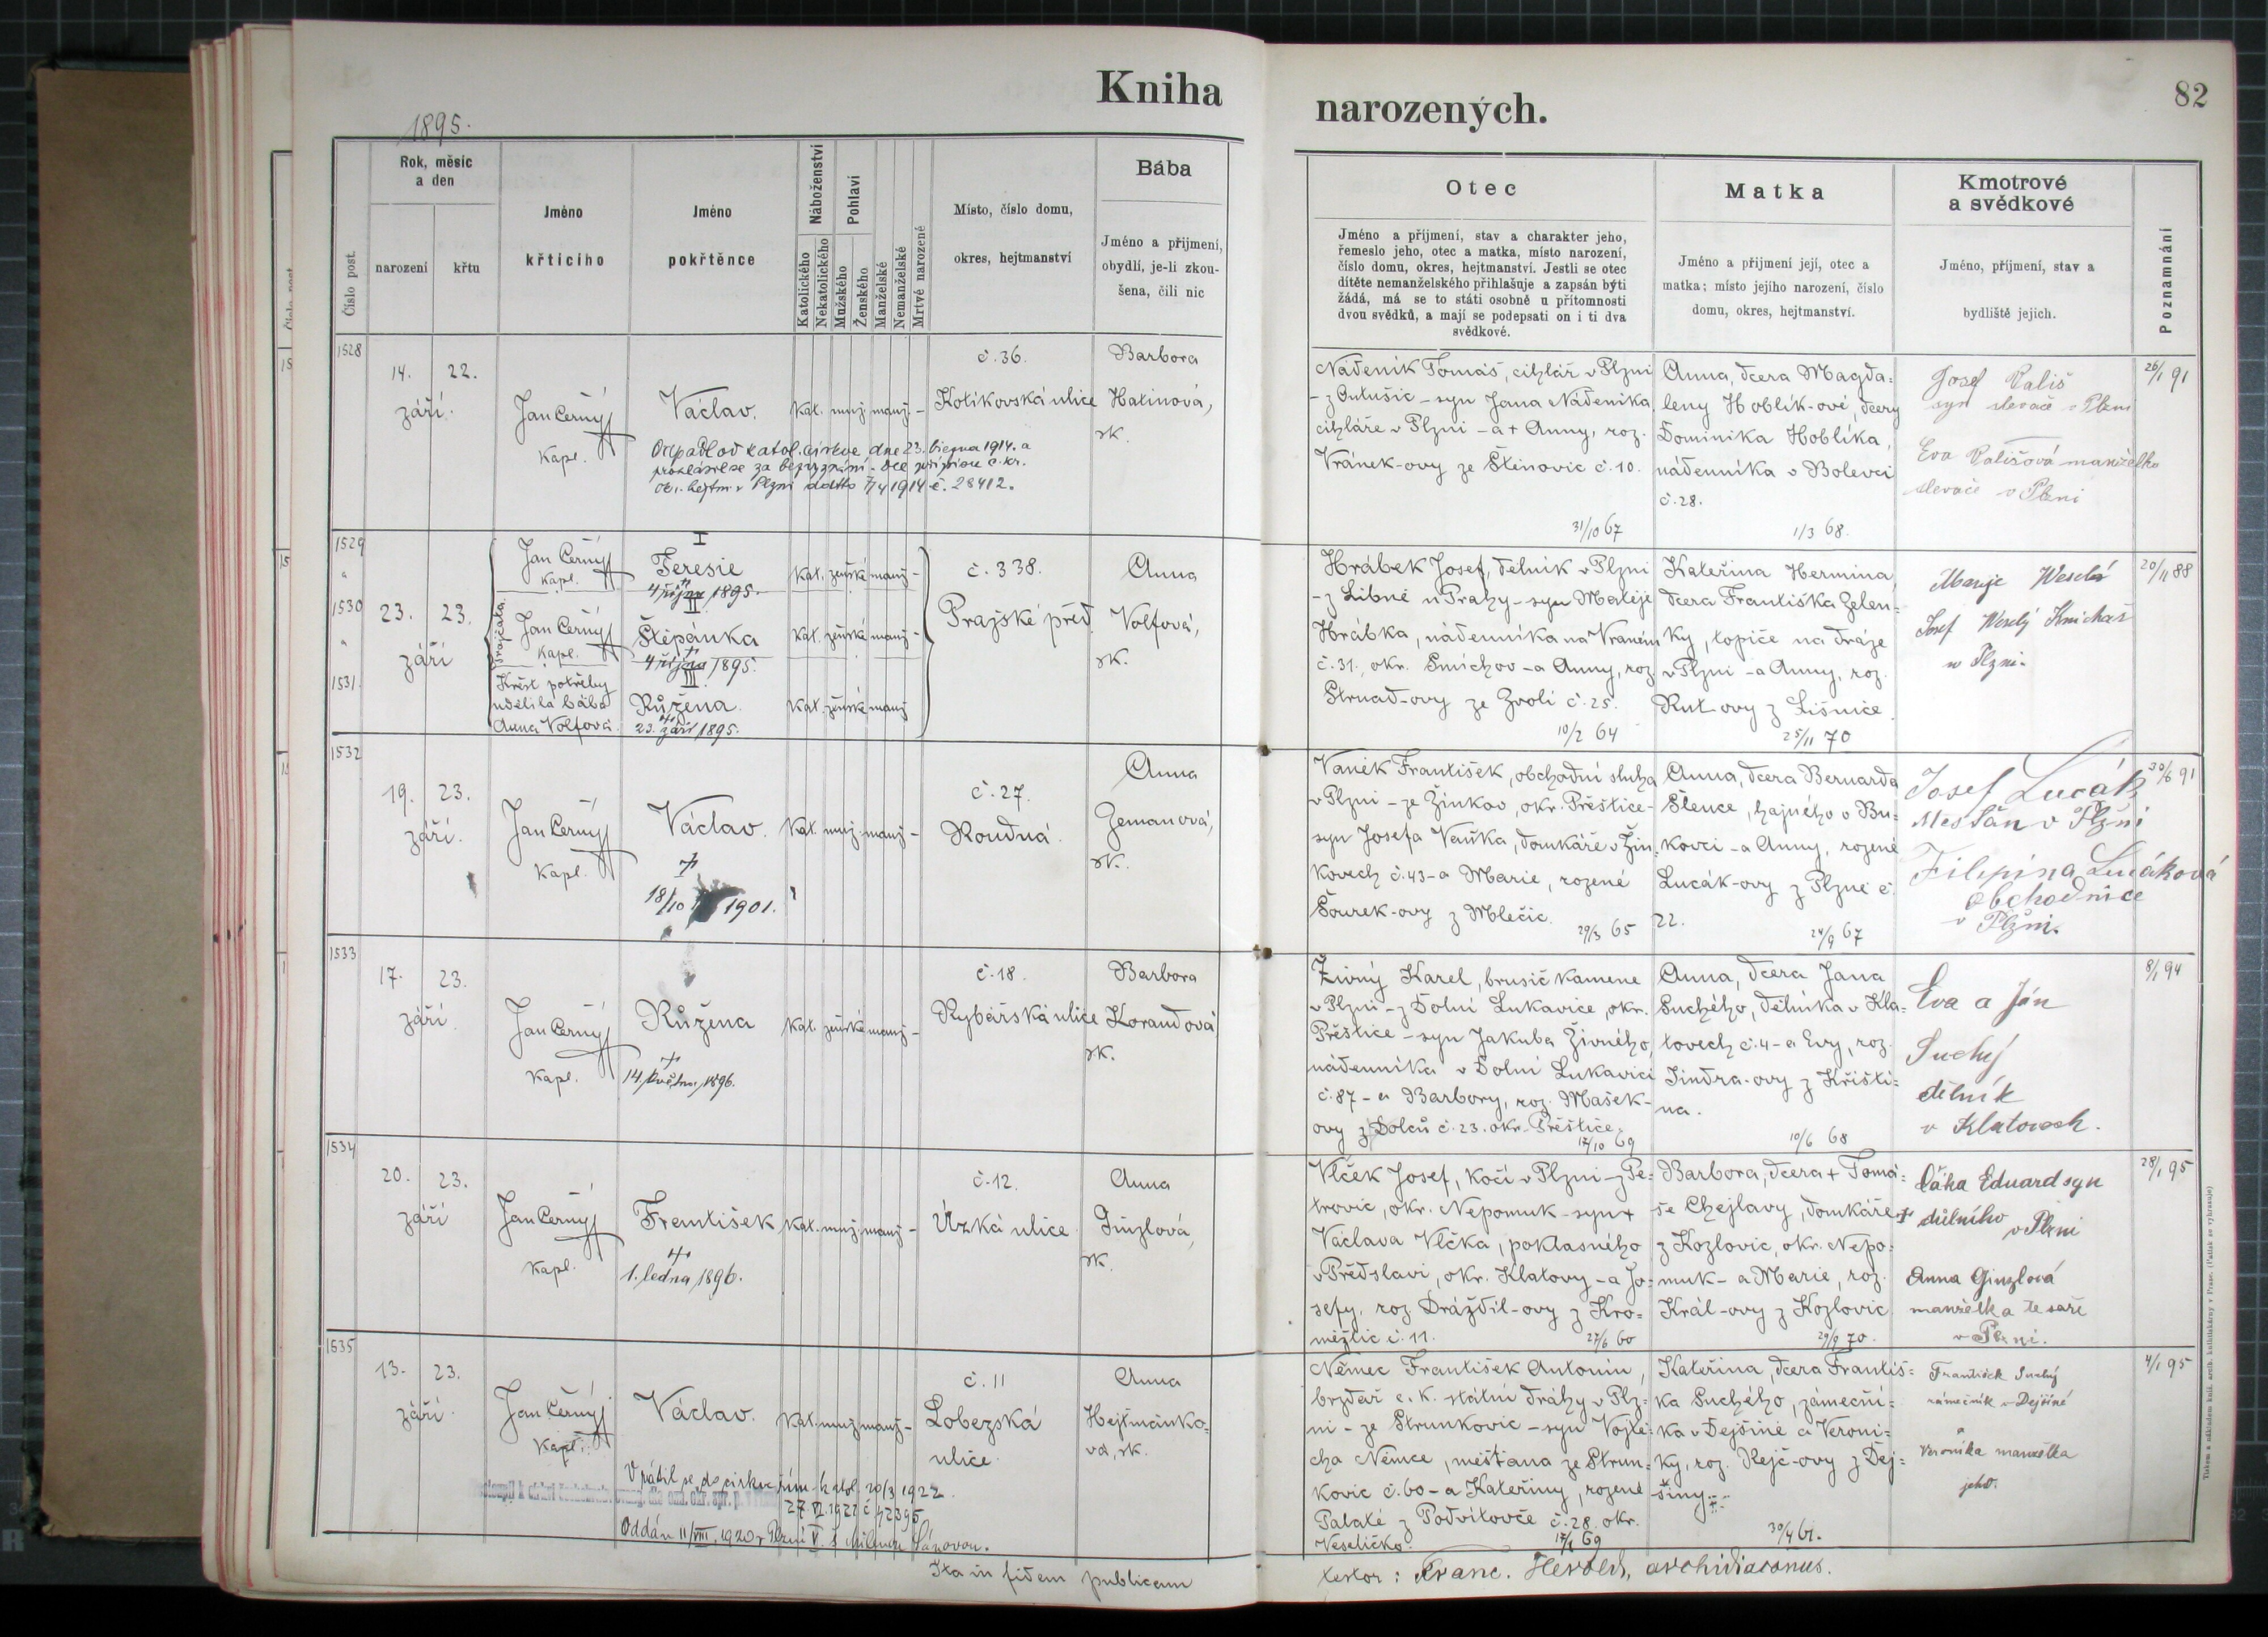 Kniha narozených.
82
1895.
Číslo post.
Rok, měsíc
a den
narození
křtu
Jméno
křtícího
Jméno
pokřtěnce
Náboženství
Katolického
Nekatolického
Pohlaví
Mužského
Ženského
Manželské
Nemanželské
Mrtvé narozené
Místo, číslo domu,
okres, hejtmanství
Bába
Jméno a příjmení,
obydlí, je-li zkou-
šena, čili nic
Otec
Jméno a příjmení, stav a charakter jeho,
řemeslo jeho, otec a matka, místo narození,
číslo domu, okres, hejtmanství. Jestli se otec
dítěte nemanželského přihlašuje a zapsán býti
žádá, má se to státi osobně u přítomnosti
dvou svědků, a mají se podepsati on i ti dva
svědkové.
Matka
Jméno a příjmení její, otec a
matka; místo jejího narození, číslo
domu, okres, hejtmanství.
Kmotrové
a svědkové
Jméno, příjmení, stav a
bydliště jejich.
Poznamnání
1528
14. 22.
září.
Jan Černý
Kapl.
Václav.
kat. muž. manž. -
Odpadl od katol. církve dne 23. března 1914. a
prohlásil se za bezvyznání - dle přípisu c. kr.
okr. hejtm. v Plzni ddto 7/4 1914 č. 28412.
č. 36.
Kotíkovská ulice
Barbora
Hatinová,
zk.
Nádeník Tomáš, cihlář v Plzni
- z Antušic - syn Jana Nádeníka,
cihláře v Plzni - a + Anny, roz.
Vránek-ovy ze Štěnovic č. 10.
31/10 67
Anna, dcera Magda=
leny Hoblík-ové, dcery
Dominika Hoblíka,
nádenníka v Bolevci
č. 28.
1/3 68.
Josef Pališ
syn slevače v Plzni
Eva Pališová manželka
slevače v Plzni
26/1 91
1529
"
1530
"
1531
23. 23.
září
trojčata.
Jan Černý
Kapl.
I
Teresie
+
4 října 1895.
kat. ženské manž -
Jan Černý
Kapl.
II
Štěpánka
+
4 října 1895.
kat. ženské manž -
Křest potřeby
udělila bába
Anna Volfová.
III.
Růžena.
+
23. září 1895.
kat. ženské manž
č. 338.
Pražské před.
Anna
Volfová,
zk.
Hrábek Josef, dělník v Plzni
- z Libně u Prahy - syn Matěje
Hrábka, nádenníka na Vraném
č. 31, okr. Smíchov - a Anny, roz.
Strnad-ovy ze Zvolí č. 25.
10/2 64
Kateřina Hermina,
dcera Františka Zelen=
ky, topiče na dráze
v Plzni - a Anny, roz.
Rut-ovy z Líšnice.
25/11 70
Marye Weselá
Josef Weselý Knichař
w Plzni.
20/11 88
1532
19. 23.
září.
Jan Černý
Kapl.
Václav.
+
18/10 1901.
kat. muž. manž -
č. 27.
Roudná.
Anna
Zemanová,
zk.
Vaněk František, obchodní sluha
v Plzni - ze Žinkov, okr. Přeštice -
syn Josefa Vaňka, domkáře v Žin=
kovech č. 43 - a Marie, rozené
Šourek-ovy z Mlečic.
29/3 65
Anna, dcera Bernarda
Šlence, hajného v Bu=
kovci - a Anny, rozené
Lucák-ovy z Plzně č.
22.
24/9 67
Josef Lucák
Mešťan v Plzni
Filipina Lucáková
obchodnice
v Plzni.
30/6 91
1533
17. 23.
září.
Jan Černý
Kapl.
Růžena
+
14. května 1896.
kat. ženské manž -
č. 18.
Rybářská ulice
Barbora
Korandová
zk.
Živný Karel, brusič kamene
v Plzni - z Dolní Lukavice, okr.
Přeštice - syn Jakuba Živného,
nádenníka v Dolní Lukavici
č. 87 - a Barbory, roz. Mašek-
ovy z Dolců č. 23. okr. Přeštice.
17/10 69
Anna, dcera Jana
Suchého, dělníka v Kla=
tovech č. 4 - a Evy, roz.
Jindra-ovy z Křišti=
na.
10/6 68
Eva a Ján
Suchý
dělník
v Klatovech.
8/1 94
1534
20. 23.
září
Jan Černý
Kapl.
František
+
1. ledna 1896.
kat. muž. manž -
č. 12.
Úzká ulice
Anna
Ginzlová,
zk.
Vlček Josef, kočí v Plzni - z Pe=
trovic, okr. Nepomuk - syn +
Václava Vlčka, poklasného
v Předslavi, okr. Klatovy - a Jo=
sefy, roz. Dráždil-ovy z Kro=
měždic č. 11.
27/6 60
Barbora, dcera + Tomá=
še Chejlavy, domkáře
z Kozlovic, okr. Nepo=
muk - a Marie, roz.
Král-ovy z Kozlovic
29/9 70.
Eduard syn
důlního v Plzni
Anna Ginzlová
manželka tesaře
v Plzni.
28/1 95
1535
13. 23.
září.
Jan Černý
Kapl.
Václav.
kat. muž. manž -
Vrátil se do církve řím. katol. 20/3 1922.
27. VI. 1921 č 42395
Oddán 11/VIII. 1920 v Plzni s Milenou
č. 11
Lobezská
ulice
Anna
Hejtmánko=
vá, zk.
Němec František Antonín,
brzdař c. k. státní dráhy v Plz=
ni - ze Strunkovic - syn Vojtě=
cha Němce, měšťana ze Strun=
kovic č. 60 - a Kateřiny, rozené
Palaté z Podvitovče č. 28. okr.
Veselíčko.
17/1 69
Kateřina, dcera Františ=
ka Suchého, zámeční=
ka v Dejšině a Veroni=
ky, roz. Rejč-ovy z Dej=
šiny.
30/4 61.
František Suchý
zámečník v Dejšině
a
Veronika manželka
jeho.
4/1 95
Ita in fidem publicam
testor: Franc. Herold, archidiaconus.